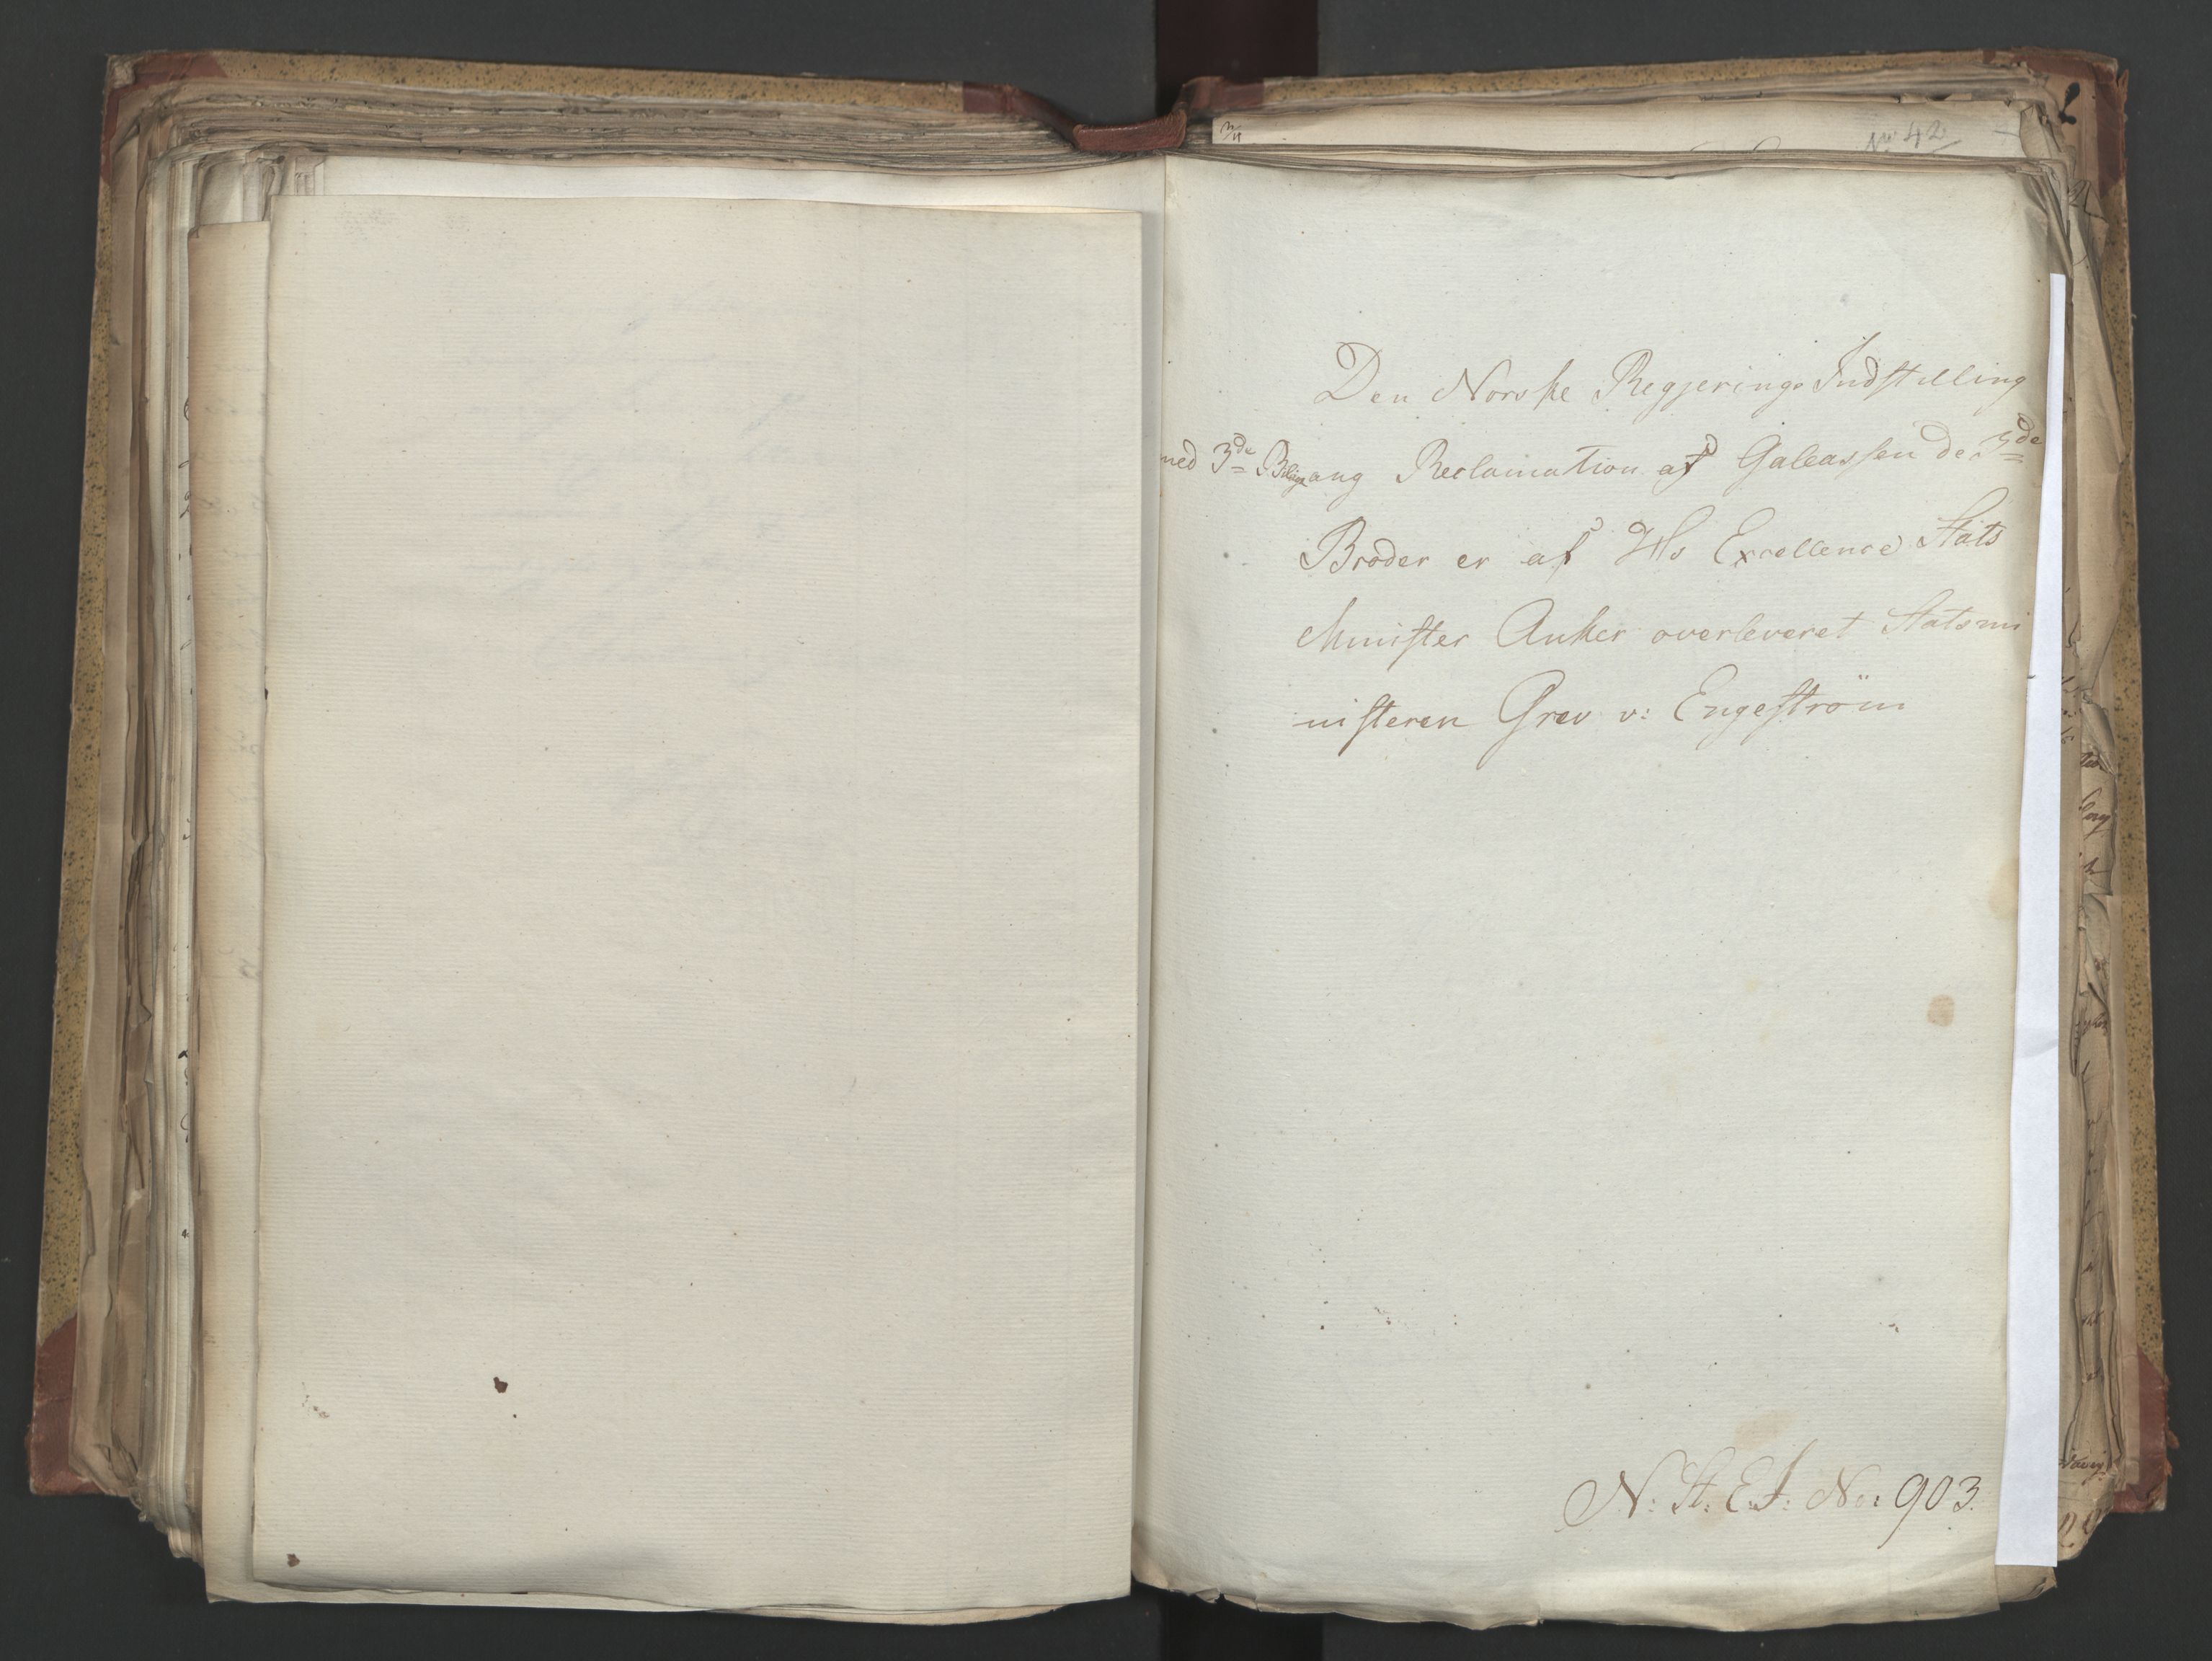 No 42
Den Norske Regjerings Indstilling
med 3de Bilage ang Reclamation af Galeassen de 3de
Brøder er af Hs Excellence Stats
Minister Anker overleveret Statsmi
nisteren Grev v: Engeström
N: St: E. J: No: 903.